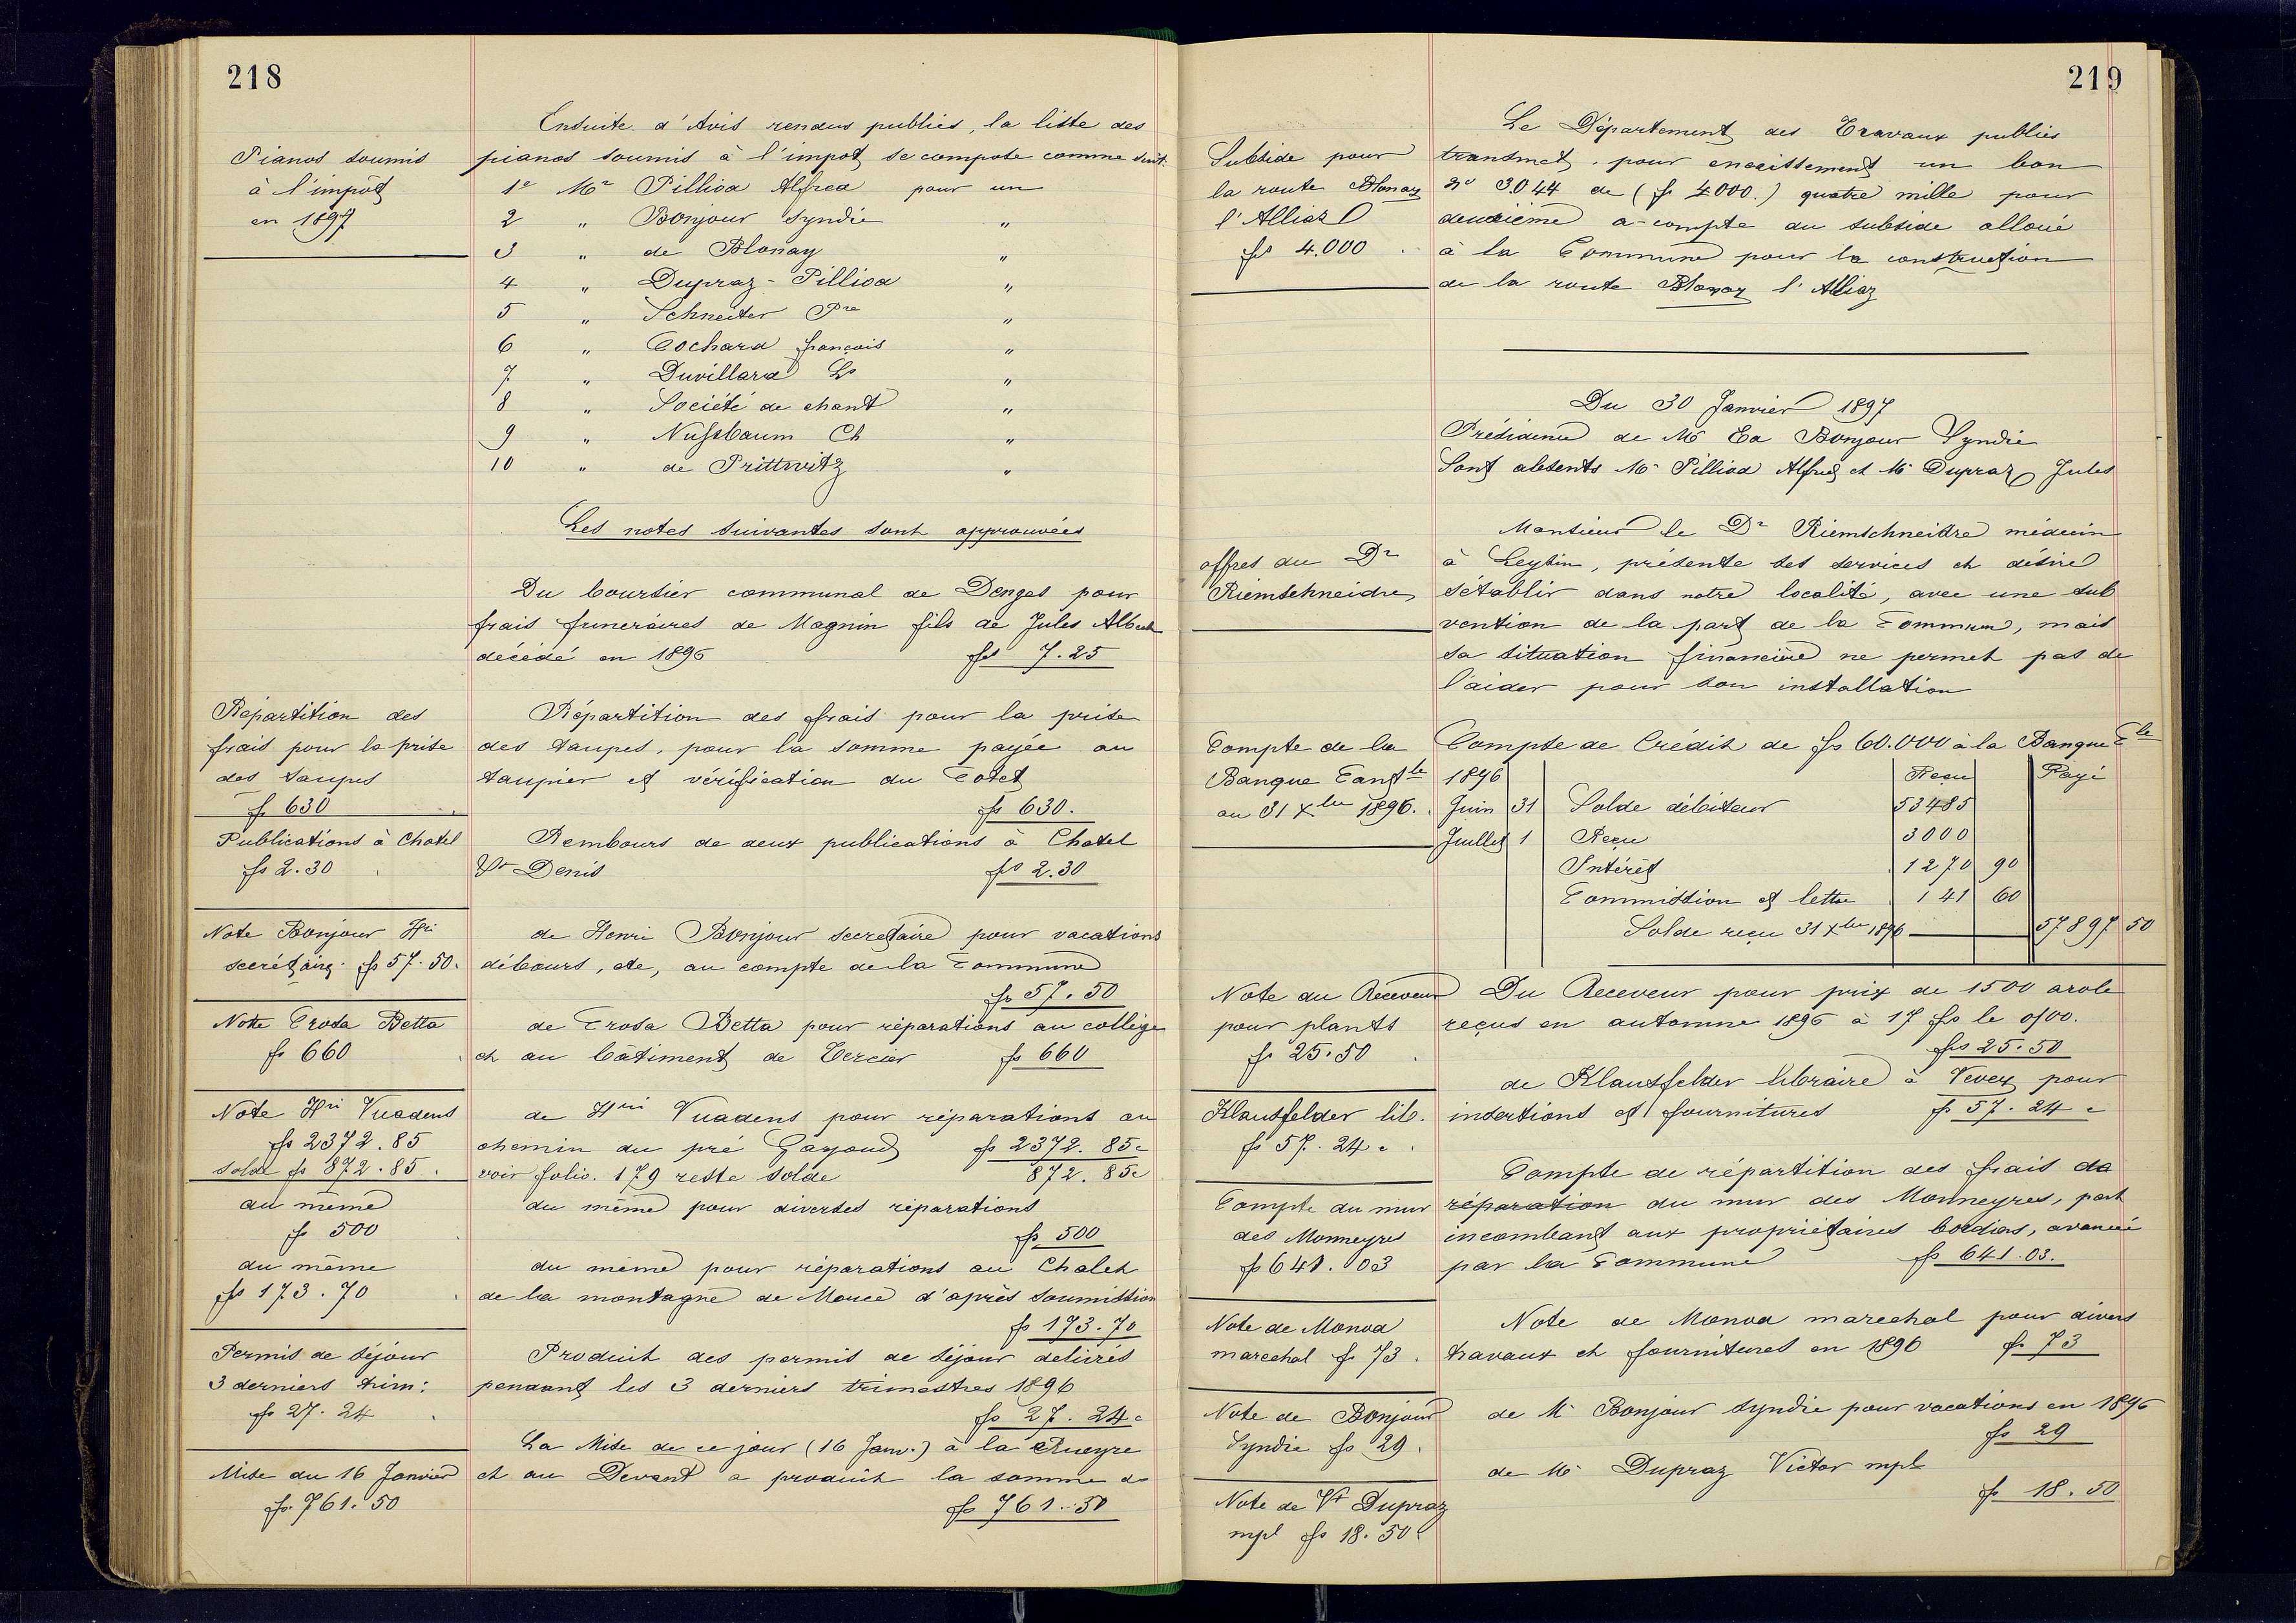 218
Ensuite d'Avis rendus publics, la liste des
Pianos soumis
à l'impôt
en 1897
pianos soumis à l'impot se compose comme suit:
1e Mr Pilliod Alfred pour un
2 " Bonjour Syndic "
3 " de Blonay "
4 " Dupraz-Pilliod "
5 " Schneiter Pre "
6 " Cochard françois "
7 " Duvillard Ls "
8 " Société de chant "
9 " Nussbaum Ch "
10 " de Prittwitz "
Les notes suivantes sont approuvées
Du boursier communal de Denges pour
frais funeraires de Magnin fils de Jules Albert
décédé en 1896 frs 7.25
Répartition des
frais pour la prise
des taupes
f 630
Répartition des frais pour la prise
des taupes, pour la somme payée au
taupier et vérification du
frs 630.
Publications à Chatel
fs 2.30
Rembours de deux publications à Chatel
St Denis frs 2.30
Note Bonjour Hri
secrétaire fs 57.50.
de Henri Bonjour secretaire pour vacations
débours, etc, au compte de la Commune
frs 57.50
Note Crosa Betta
fr 660
de Crosa Betta pour réparations au collège
et au bâtiment de Tercier fs 660
Note Hri Vuadens
fs 2372.85
solde fs 872.85.
de Hri Vuadens pour réparations au
chemin du pré Gayoud fs 2372.85c
voir folio. 179 reste solde 872.85c
du même
fr 500
du même pour diverses réparations
fs 500
du même
fs 173.70
du même pour réparations au Chalet
de la montagne de d'après soumission
fs 173.70
Permis de séjour
3 derniers trim:
fs 27.24
Produit des permis de séjour delivrés
pendant les 3 derniers trimestres 1896
fs 27.24c
Mise du 16 Janvier
fs. 761.50
La Mise de ce jour (16 Janv.) à la
et au Devant a produit la somme de
fs 761.50
219
Subside pour
la route Blonay
l'Alliaz
frs 4.000
Le Département des Travaux publics
transmet pour encaissement un bon
No 3044 de (fs 4000.) quatre mille pour
deuxième a-compte du subside alloué
à la Commune pour la construction
de la route Blonay l'Alliaz
Du 30 Janvier 1897
Présidence de Mr Ed Bonjour Syndic
Sont absents Mr Pilliod Alfred et Mr Dupraz Jules
offres du Dr
Riemschneidre
Monsieur le Dr Riemschneidre médecin
à Leysin, présente ses services et désire
s'établir dans notre localité, avec une sub
vention de la part de la Commune, mais
sa situation financière ne permet pas de
l'aider pour son installation
Compte de la
Banque Cantle
au 31 Xbre 1896.
Compte de Crédit de frs 60.000 à la Banque Cle
1896 Reçu Payé
Juin 31 Solde débiteur 53485
Juillet 1 Reçu 3000
Intérêt 1270 90
Commission et lettre 141 60
Solde reçu 31 Xbre 1896 57897 50
Note du Receveur
pour plants
fr 25.50
Du Receveur pour prix de 1500 arole
reçus en automne 1896 à 17 frs le 0/00.
frs 25.50
Klausfelder lib.
fs 57.24c
de Klausfelder libraire à Vevey pour
insertions et fournitures fr 57.24c
Compte du mur
des Monneyres
fs 641.03
Compte de répartition des frais de
réparation du mur des Monneyres, part
incombant aux propriétaires bordiers, avancée
par la Commune fs 641.03.
Note de Monod
marechal fr 73.
Note de Monod marechal pour divers
travaux et fournitures en 1896 fr 73
Note de Bonjour
Syndic fs 29.
de Mr Bonjour Syndic pour vacations en 1896
fs 29
Note de Vr Dupraz
mpl fs 18.50c
de Mr Dupraz Victor mpl
fs 18.50